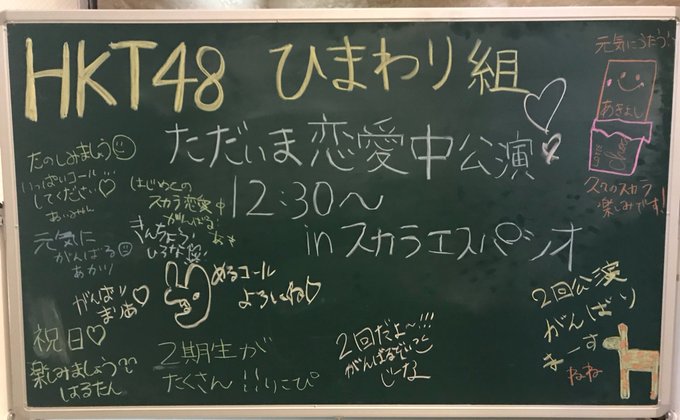 HKT48 ひまわり組
ただいま恋愛中公演
12:30〜
in スカラエスパシオ
元気にうたう!
あきよし
久々のスカラ
楽しみです!
たのしみましょう
いっぱいコール
してください♡
あいみゃん
はじめての
スカラ恋愛中
がんばる
元気に
がんばる
あかり
きんちょう
ひろな
がんばり
まりあ♡
めるコール
よろしくね♡
祝日♡
楽しみましょう
はるたん
2期生が
たくさん!!りこぴ
2回だよ〜!!!
がんばるでいっ
じーな
2回公演
がんばり
まーす
ねね